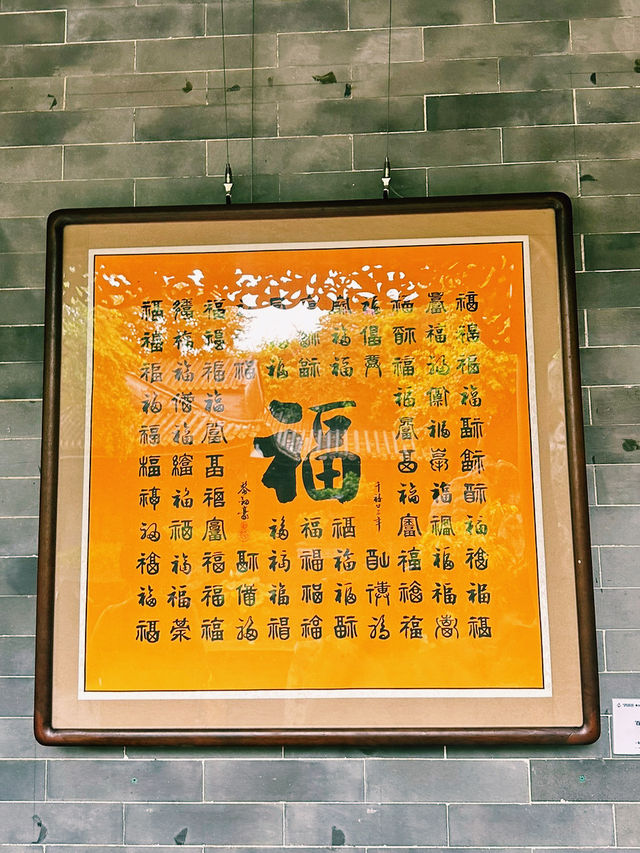 福福福福福福福福福福福
福福福福福福福福福福福
福福福福福福福福福福福
福福福
福福福
福福福
福福福
福福福
福
福福福
福福福福
福福福福
福福福福
福福福
福福福福福福福福福福福
福福福福福福福福福福福
福福福福福福福福福福福